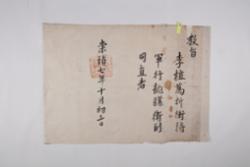 教旨
李為折衝將
軍行龍驤衛副
司直者
崇禎七年十月初日